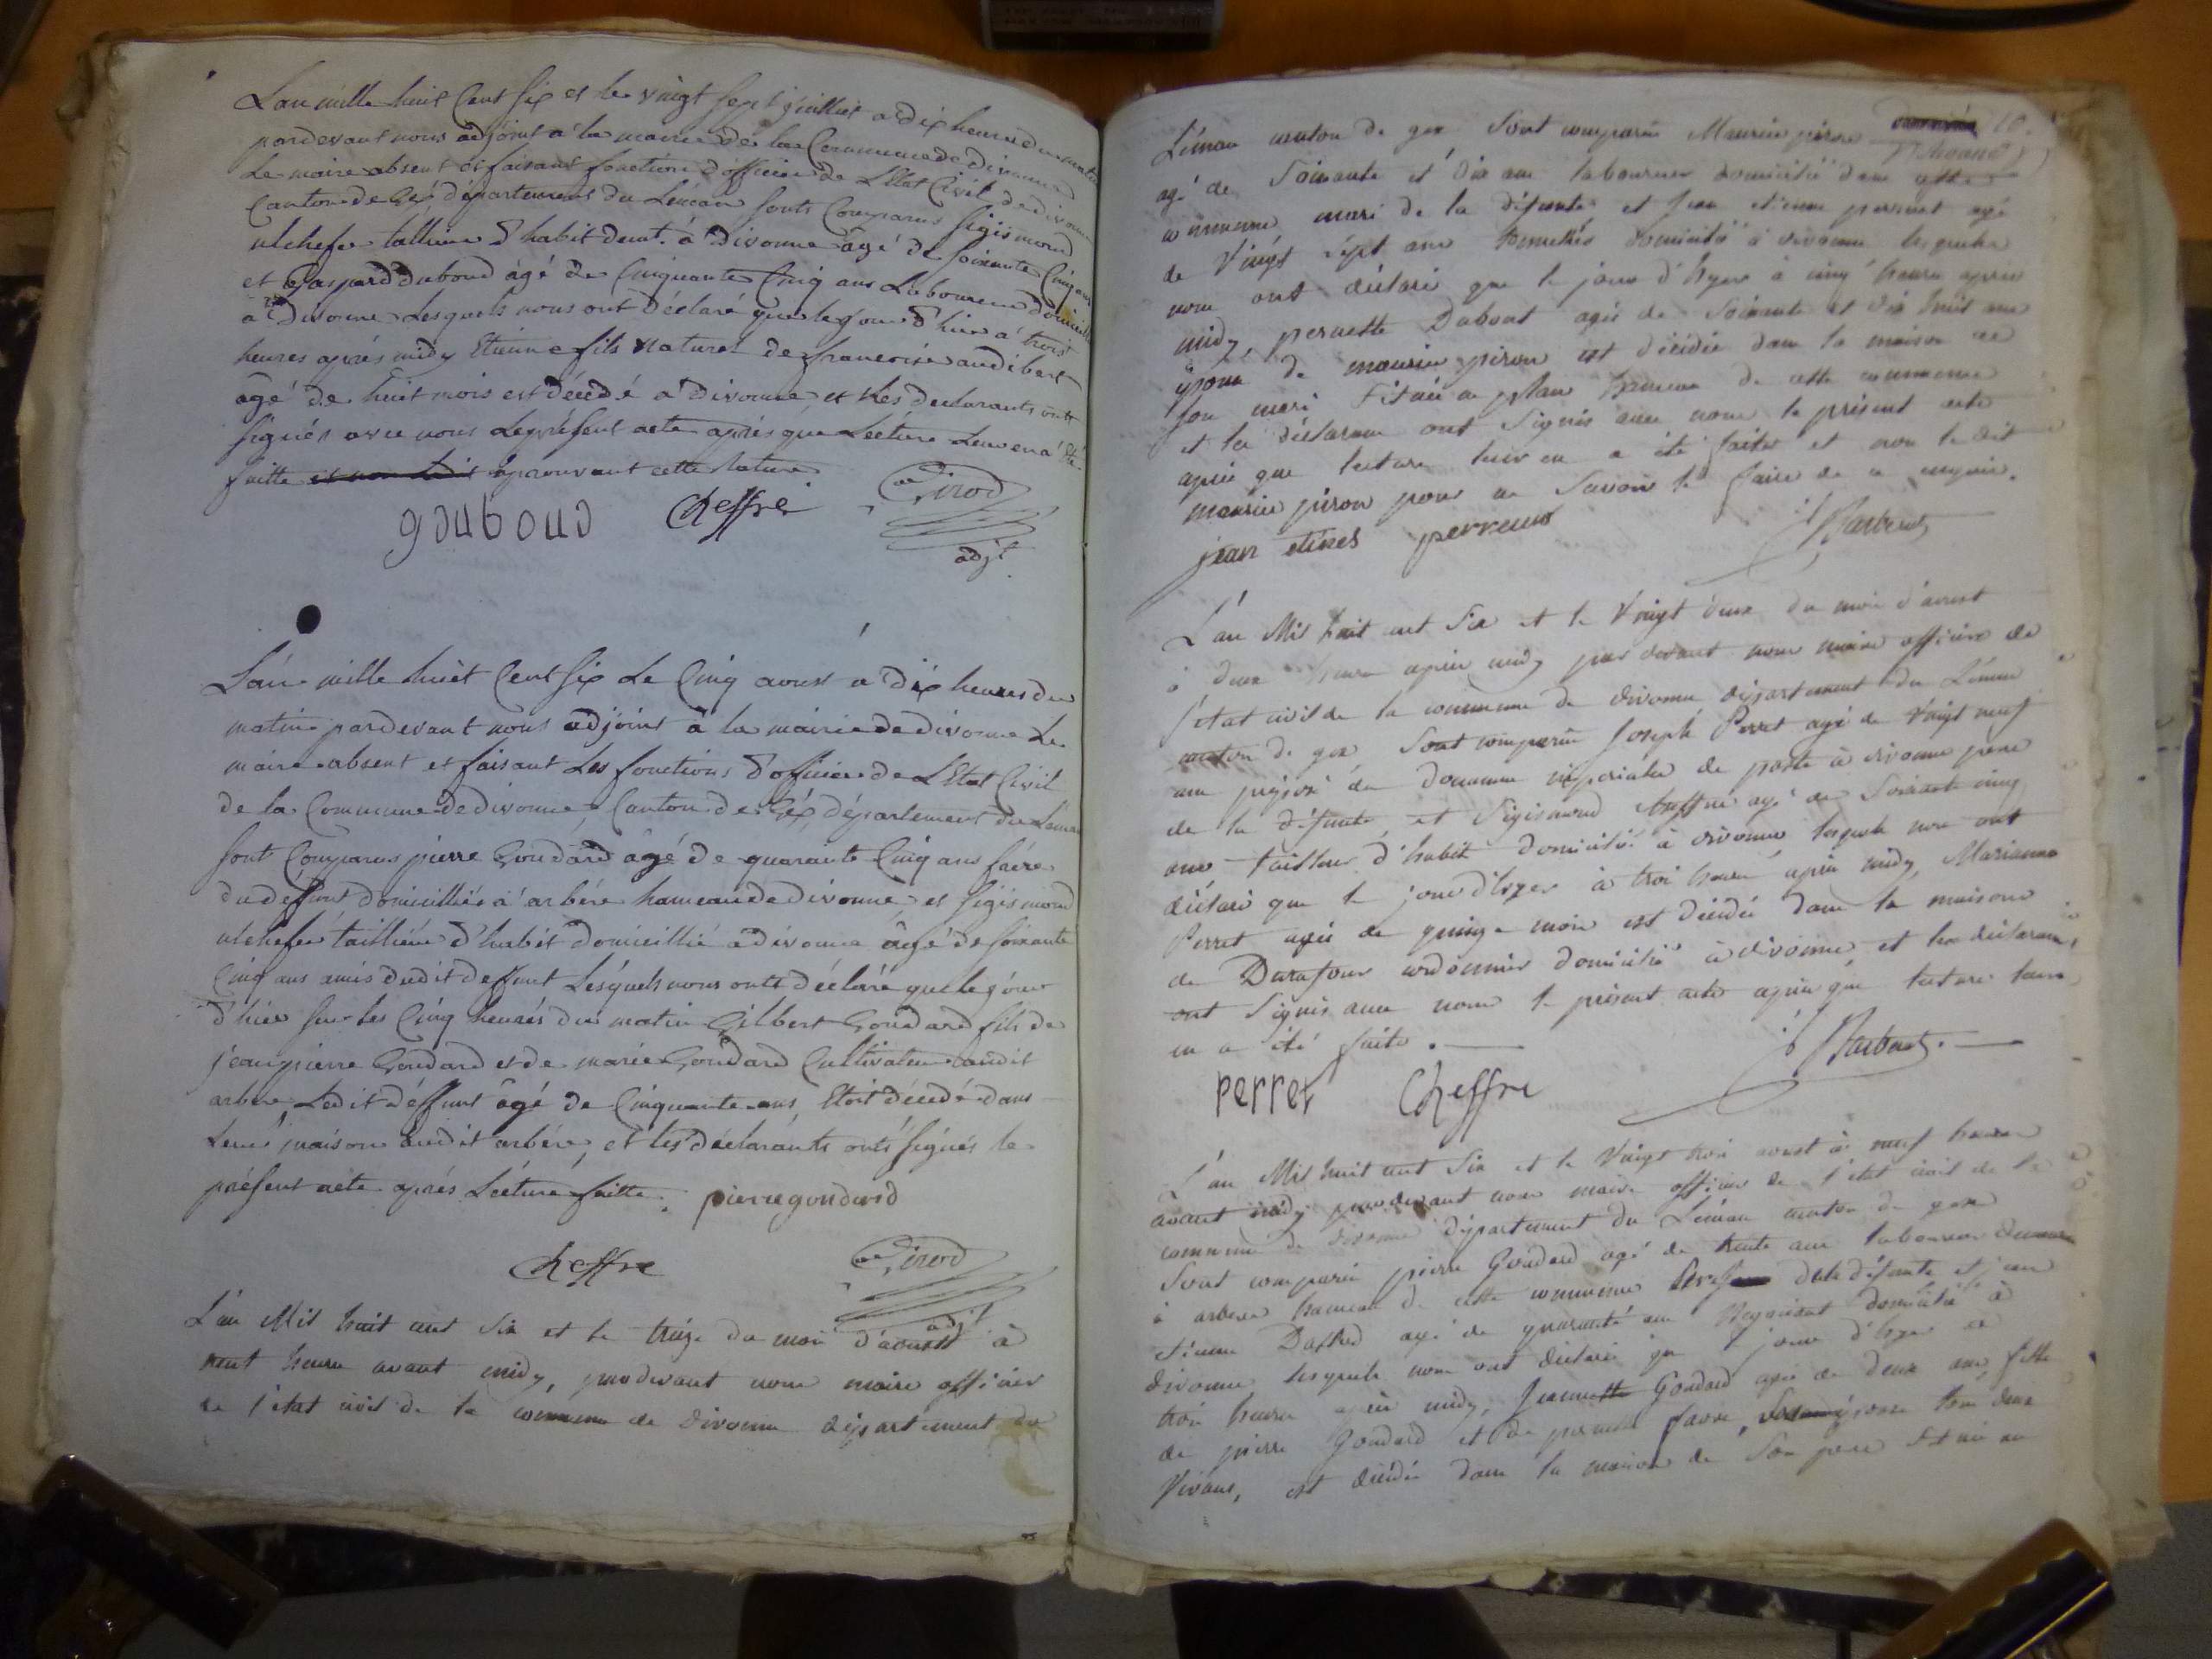 L'an mille huit Cent six et le vingt sept juilliet a dix heures du matin
pardevant nous adjoint a la mairie de la Commune de divonne
Le maire absent et faisant fonction d'officier de L'Etat Civil de divonne
Canton de Gex département du Léman sonts Comparus sigismond
talliéur d'habit demt. à divonne âgé de soixante Cinq ans
et Gaspard duboud âgé de Cinquante Cinq ans Laboureur domicillié
a Divonne Lesquels nous ont déclaré que le jour d'hier a trois
heures aprés midy Etienne fils naturel de francoise audibert
âgé de huit mois est décédé a divonne et les declarants ont
signés avec nous Le présent acte aprés que Lecture Leur en a été
faitte et non ledit aprouvant cette rature
gduboud Cheffre Girod
adjt
L'an mille huit Cent six Le Cinq aoust a dix heures du
matin pardevant nous adjoint a la mairie de divonne Le
maire absent et faisant Les fonctions d'officier de L'Etat Civil
de la Commune de divonne, Canton de Gex, département du Léman
sont Comparus pierre Goudard âgé de quarante Cinq ans frére
du déffunt domicillié a arbére hameau de Divonne et sigismond
tailliéur d'habit domicillié a divonne âgé de soixante
Cinq ans amis dudit deffunt Lesquels nous ont déclaré que le jour
d'hier sur les Cinq heures du matin Gilbert Goudard fils de
jean pierre Goudard et de marie Goudard Cultivateur audit
arbére, Ledit déffunt âgé de Cinquante ans, Etoit décédé dans
Leur maison audit arbére, et les déclarants ont signés le
présent acte aprés Lecture faitte. pierre goudard
Cheffre Girod
adjt
L'an Mil huit cent six et le treize du mois d'aoust à
neuf heures avant midy, pardevant nous maire officier
de l'état civil de la commune de Divonne département du
Léman canton de gex sont comparus Maurice piron 10.
agé de soixante et dix ans laboureur domicilié dans cette
commune mari de la défunte et Jean etienne perreux agé
de Vingt sept ans domicilié à divonne lesquels
nous ont déclaré que le jour d'hyer à cinq heures après
midy, pernette Dubout agée de soixante et dix huit ans
épouse de maurice piron est décédée dans la maison de
son mari située au plan hameau de cette commune
et les déclarans ont signés avec nous le présent acte
après que lecture leur en a été faite et non le dit
maurice piron pour ne savoir le faire de ce enquis.
jean etines perreux
L'an Mil huit cent six et le Vingt deux du mois d'aoust
à deux heures après midy par devant nous maire officier de
l'état civil de la commune de divonne département du Léman
canton de gex sont comparus Joseph Perret agé de vingt neuf
ans préposé des douanes impériales de poste à divonne père
de la défunte, et Sigismond Cheffre agé de soixante cinq
ans tailleur d'habit domicilié à divonne lesquels nous ont
déclaré que le jour d'hyer à trois heures après midy, Marianne
Perret agée de quinze mois est décédée dans la maison
de Durafour cordonnier domicilié à divonne, et les déclarans
ont signés avec nous le présent acte après que lecture leur
en a été faite.
perret Cheffre
L'an Mil huit cent six et le Vingt trois aoust à neuf heures
avant midy pardevant nous maire officier de l'état civil de la
commune de divonne département du Léman canton de gex
sont comparus pierre Goudard agé de trente ans laboureur
à arbere hameau de cette commune de la défunte et jean
etienne agé de quarante ans domicilié à
divonne lesquels nous ont déclaré que le jour d'hyer à
trois heures après midy, Jeannette Goudard agée de deux ans fille
de pierre Goudard et de pernette favre, tous deux
Vivans, est décédée dans la maison de son père située au